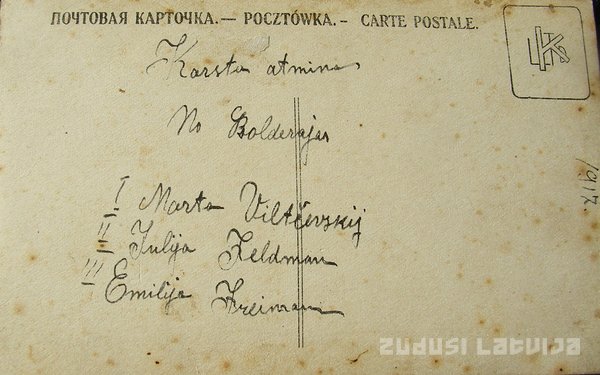 ПОЧТОВАЯ КАРТОЧКА.— POCZTÓWKA.- CARTE POSTALE.
Karsta atmina
No Bolderajas
I Marta Viltčevskij
II Julija Feldman
III Emilija Freiman
1917.
ZUDUSI LATVIJA